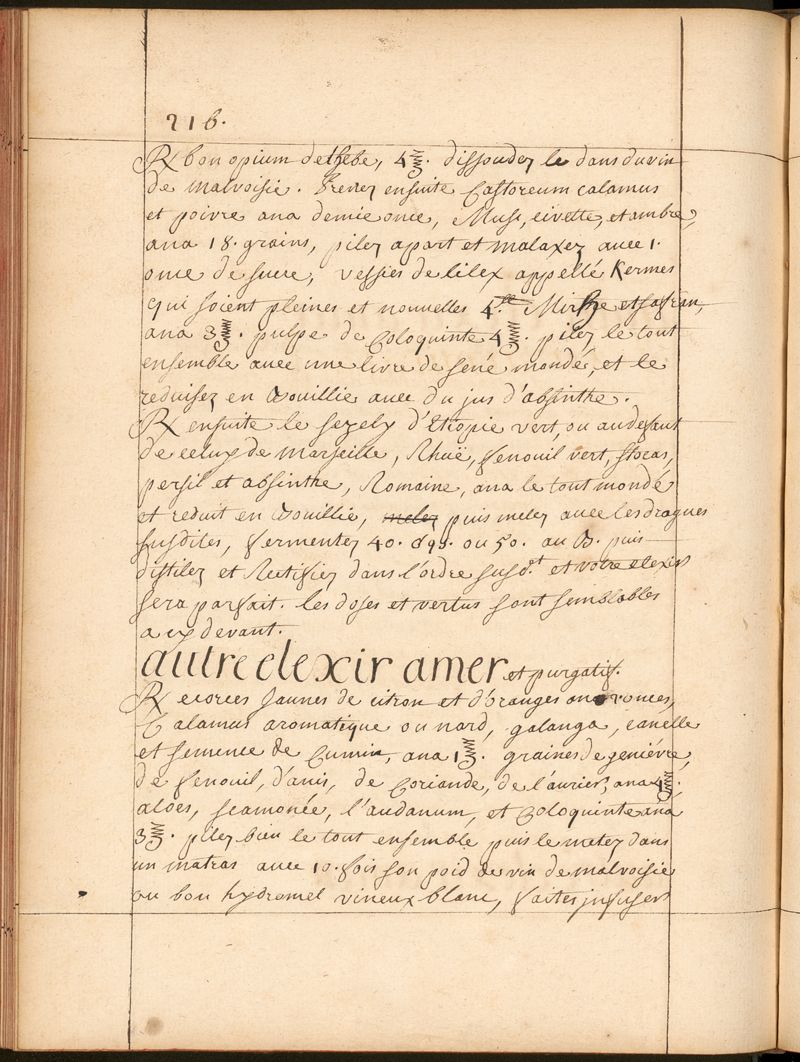 216.
℞ bon opium dethebe, 4ʒ. dissoudez le dans du vin
de malvoisie. Prenez ensuite Castoreum calamus
et poivre ana demie once, Musc, civette, et ambre,
ana 18. grains, pilez apart et malaxez avec 1.
once de sucre, vessies de lilex appellé Kermes
qui soient pleines et nouvelles 4. Mirhe et safran,
ana 3ʒ. pulpe de Coloquinte 4ʒ. pilez le tout
ensemble avec une livre de sené mondé, et le
reduisez en Bouillie avec du jus d'absinthe.
℞ ensuite le sezely d'Etiopie vert, ou audefaut
de celuy de marseille, Rhuë, fenouil vert, stocas,
persil et absinthe, Romaine, ana le tout mondé
et reduit en Bouillie, melez puis melez avec les drogues
susdites, fermentez 40. ou 50. au B. puis
distilez et Rectifiez dans l'ordre susd.t et votre elexir
sera parfait. les doses et vertus sont semblables
a cy devant.
autre elexir amer et purgatif.
℞ ecorces Jaunes de citron et d'oranges ana 2. onces,
Calamus aromatique ou nard, galanga, canelle
et semence de Cumin, ana 1ʒ. graines de geniévre,
de fenouil, d'anis, de Coriande, de l'aurier, ana 4ʒ.
aloes, scamonée, l'audanum, et Coloquinte ana
3ʒ. pilez bien le tout ensemble puis le metez dans
un matras avec 10. fois son poid de vin de malvoisie
ou bon hydromel vineux blanc, faites jnfuser